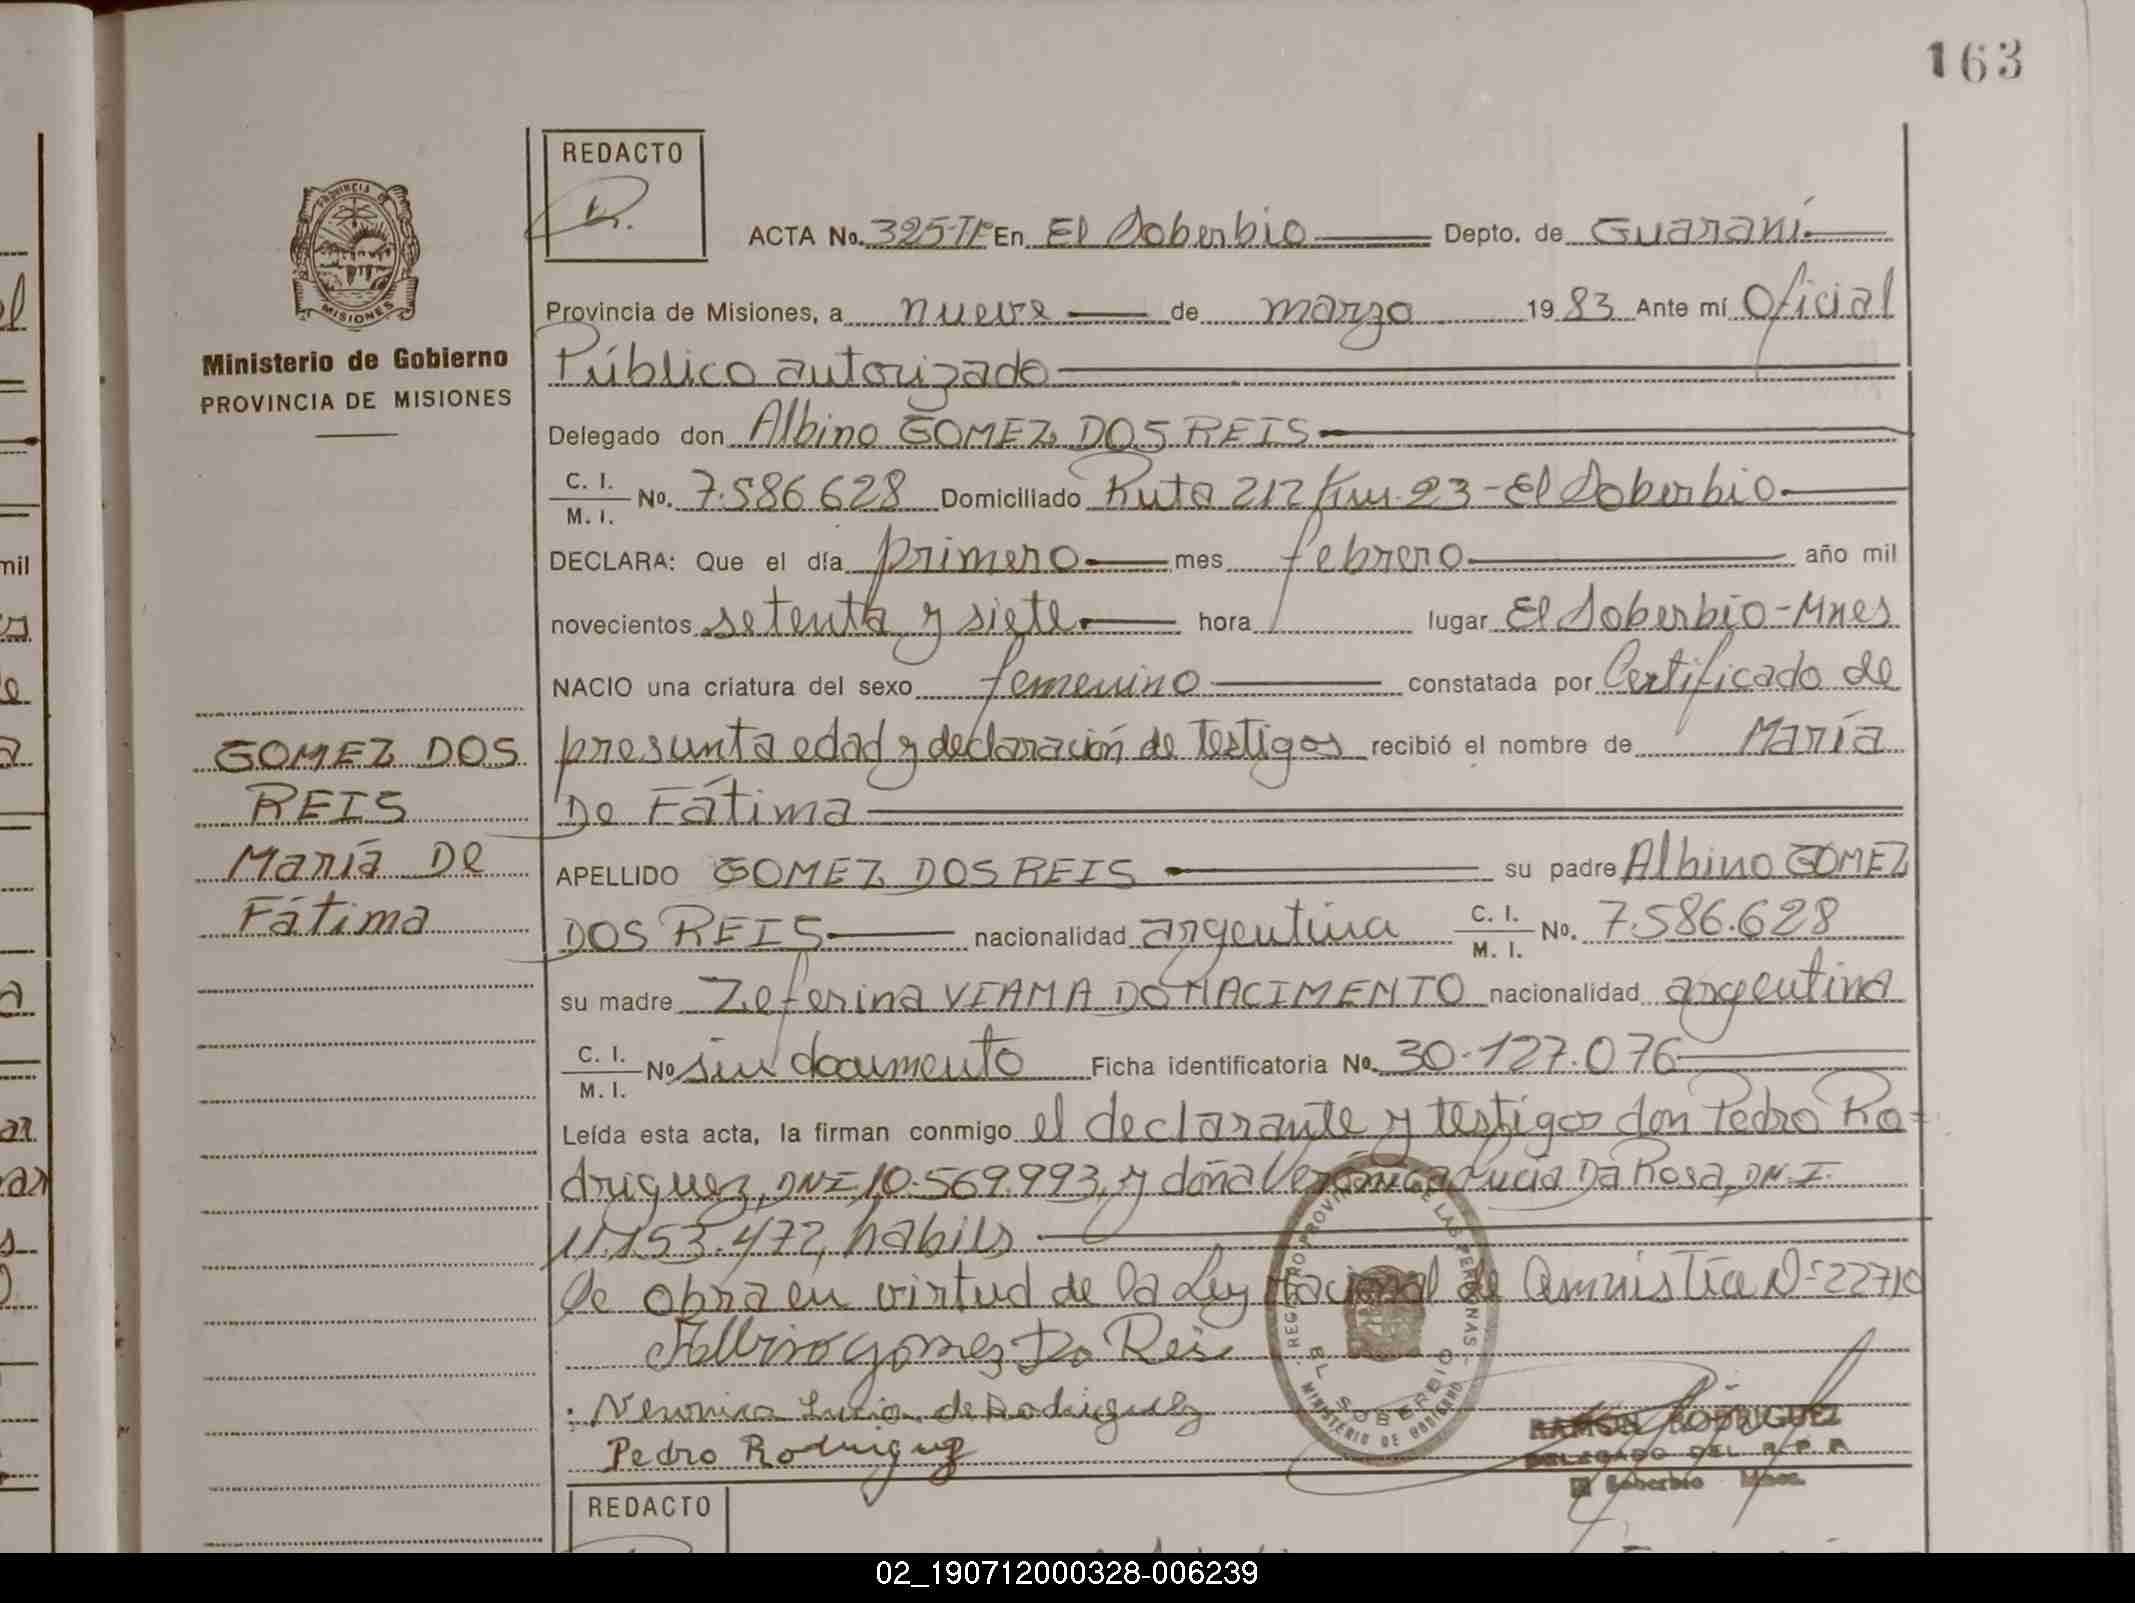 163
REDACTO
ACTA No. 325-TP En El Soberbio Depto. de Guaraní
Provincia de Misiones, a nueve de marzo 1983 Ante mí Oficial
Público autorizado
Delegado don Albino GOMEZ DOS REIS
C. I. / M. I. No. 7.586.628 Domiciliado Ruta 212 Km. 23 - El Soberbio
DECLARA: Que el día primero mes febrero año mil
novecientos setenta y siete hora / lugar El Soberbio - Mnes
NACIO una criatura del sexo femenino constatada por Certificado de
presunta edad y declaración de testigos recibió el nombre de María
De Fátima
APELLIDO GOMEZ DOS REIS su padre Albino GOMEZ
DOS REIS nacionalidad argentina C. I. / M. I. No. 7.586.628
su madre Zeferina VIANA DO NACIMENTO nacionalidad argentina
C. I. / M. I. No sin documento Ficha identificatoria No. 30.127.076
Leída esta acta, la firman conmigo el declarante y testigos don Pedro Ro-
driguez, DNI 10.569.993, y doña Verónica Lucia Da Rosa, DN.I.
11.153.472, habils
Se obra en virtud de la Ley Nacional de Amnistía N° 22710
Albino gomez Do Reis
Veronica Lucia de Rodriguez
Pedro Rodriguez
REGISTRO PROVINCIAL DE LAS PERSONAS
EL SOBERBIO
MINISTERIO DE GOBIERNO
RAMON RODRIGUEZ
DELEGADO DEL R. P. P.
El Soberbio Mnes.
PROVINCIA DE
MISIONES
Ministerio de Gobierno
PROVINCIA DE MISIONES
GOMEZ DOS
REIS
María De
Fátima
REDACTO
mil
02_190712000328-006239